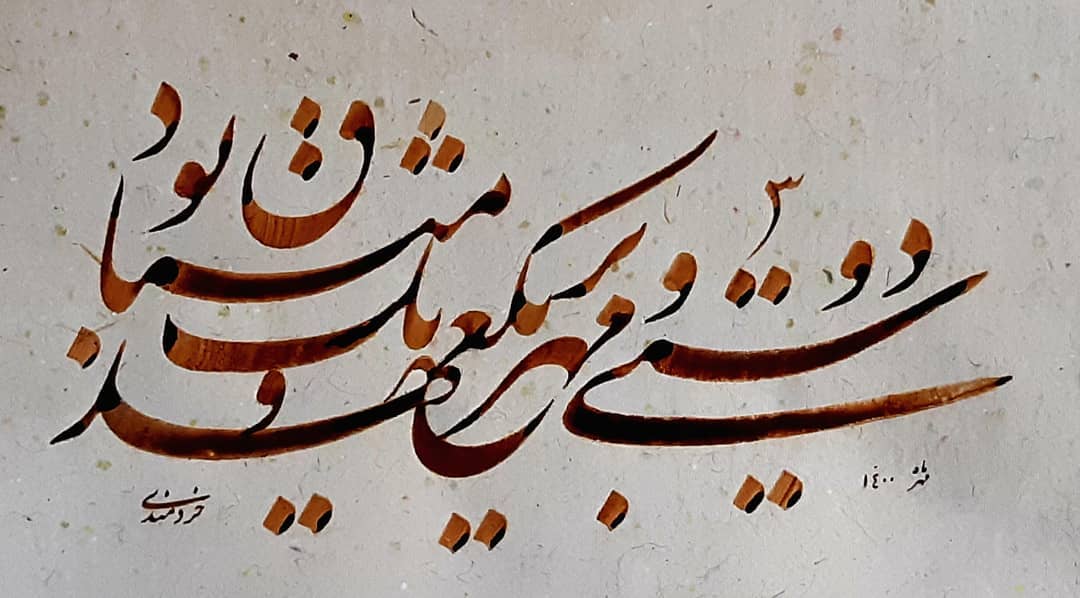 دوستی و مهر بر یک عهد و یک میثاق بود
مهر ۱۴۰۰
خردمندی